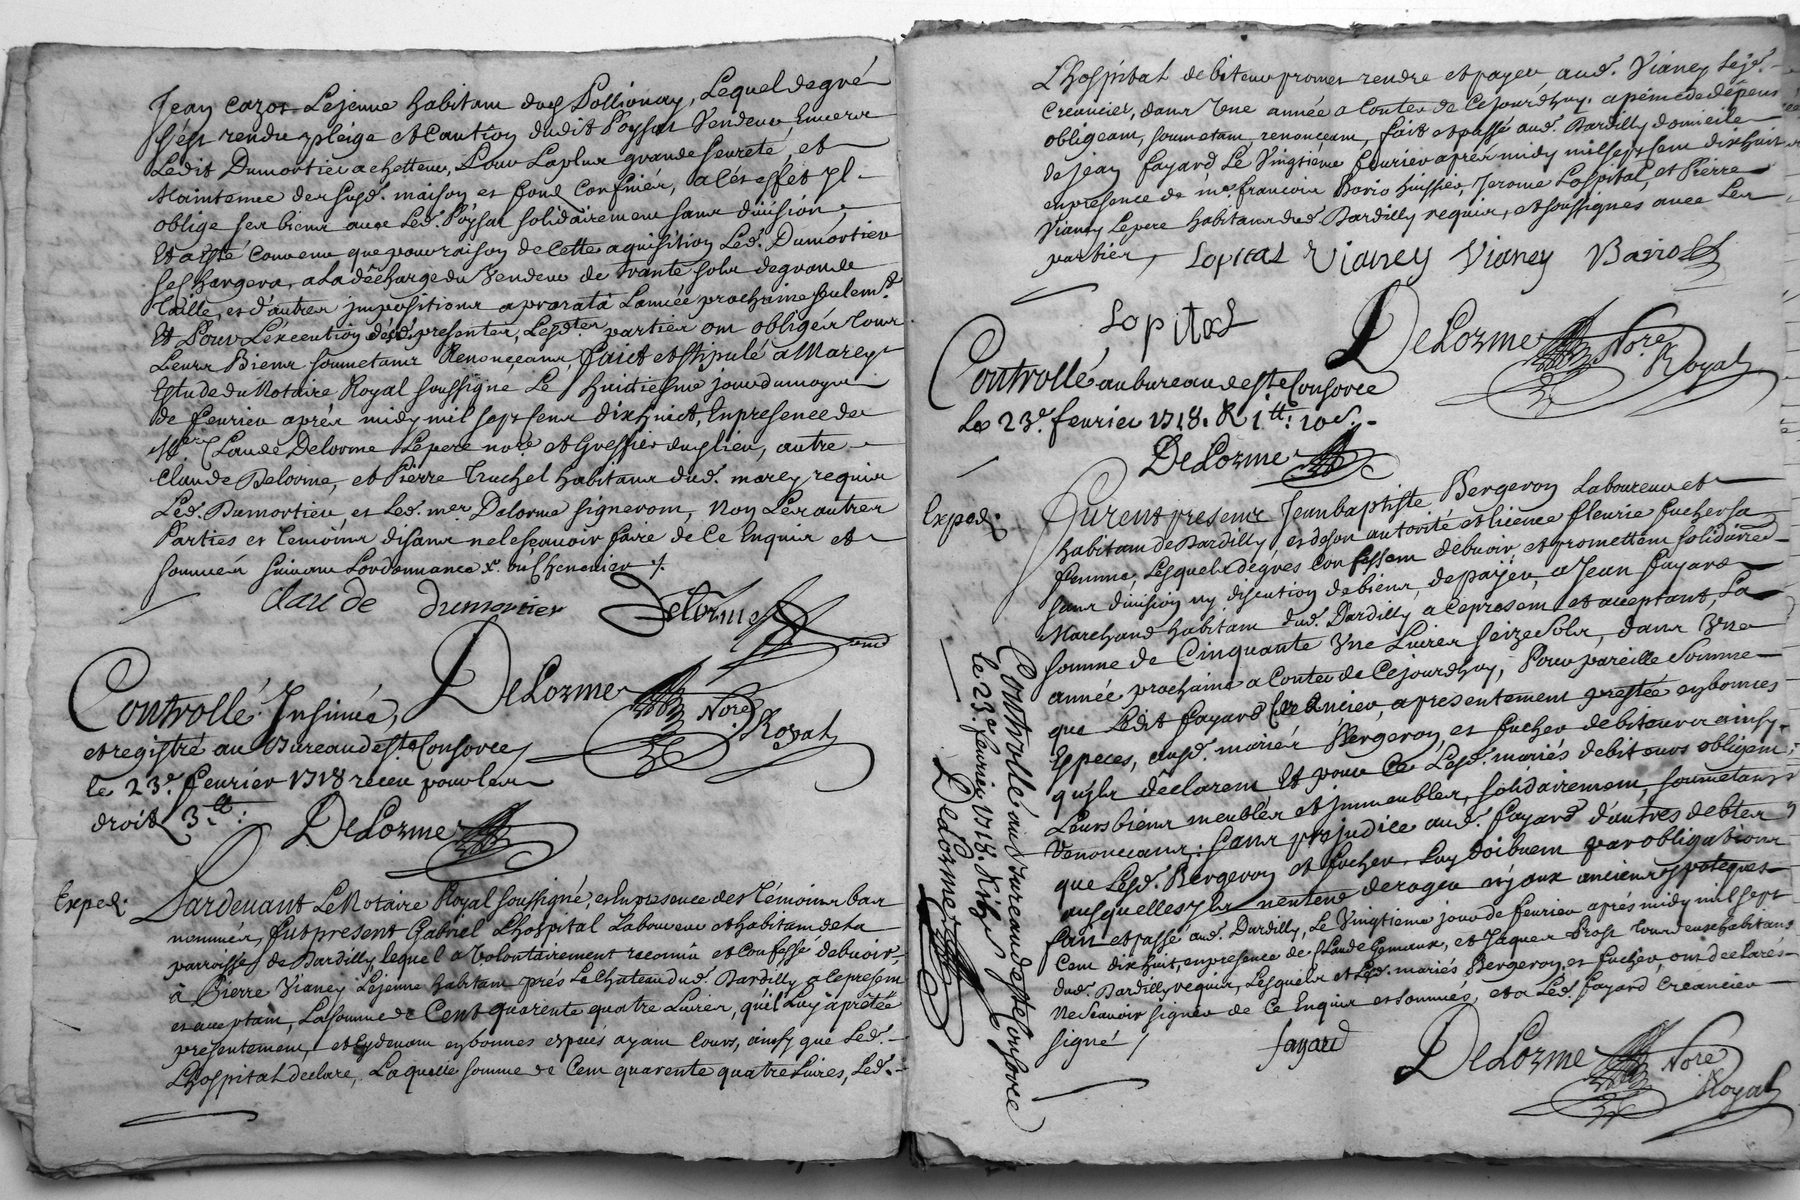 Jean cazot Lejeune habitant dud Pollionay, Lequel degré
sest rendu pleige et Caution dudit Poyssat Vendeur, Envers
Ledit Dumortier achetteur, Pour Laplus grande seureté, et
Maintenue des susd. maison et fond Confinés, a Cés effét jl
oblige ses biens avec Led. Poysat solidairement sans division,
Et a esté Convenu que pour raison de Cette aquisition Led. Dumortier
seChargera, a La décharge du Vendeur de trante sols degrande
taille, et d'autres jmpositions a prorata Lannée prochaine seulemt.
Et Pour Léxecution désd. presentes, Lesdtes. parties ont obligés tous
Leurs Biens soumetans Renonçeans, faict et stipulé a Marcy
Estude du Notaire Royal soussigné Le huitiesme jour du moys
de feurier aprés midy mil sept cens dixhuict, Enpresence de
Me. Claude Delorme Lepere nore. et Greffier dud lieu, autre
Claude Delorme, et Pierre Truchel habitans dud. marcy requis
Led. Dumortier, et Led. mer. Delorme signeront, Non Les autres
Parties et temoins disans ne le scauoir faire de Ce Enquis et
sommés suiuant Lordonnance
Claude dumortier Delorme
DeLorme Nore. Royal
Controllé Insinué,
et registré au Bureau de ste Consorce
le 23e. feurier 1718 receu pour les
droits 3tt.
DeLorme
Exped.
Pardeuant Le Notaire Royal soussigné, et en presence des témoins bas
nommés, fut present Gabriel Lhospital Laboureur et habitant de la
parroisse de Dardilly, lequel a Volontairement reconnu et Confessé debuoir,
à Pierre Vianey Lejeune habitant prés Le Chateau dud. Dardilly a Cepresent
et acceptant, La somme de Cent quarente quatre Liures, qu'il Luy a prétée
presentement, et Cydeuant en bonnes espéces ayant Cours, ainsy que Led.
Lhospital declare, Laquelle somme de Cent quarente quatre Liures, Led.
Lhospital debiteur promet rendre et payer aud. Vianey Lejé.
Creancier, dans Une année a Conter de Cejourdhuy. apéine de dépens
obligeant, soumetant, renonceant, fait et passé aud. Dardilly domicile
de jean fayard Le Vingtiéme feurier aprés midy mil sept cent dixhuit
enpresence de me. francois Bovio huissier, Jerome Lospital, et Pierre
Vianey Lepere habitans dud. Dardilly requis, et soussignes auec Les
parties,
Lopital Vianey Vianey
Lopital
DeLorme Nore. Royal
Controllé au bureau de ste Consorce
Le 23e. feurier 1718. R 1tt. 10s.
DeLorme
Exped.
Furent presens Jean baptiste Bergeron Laboureur et
habitant de Dardilly, et deson autorité et licence fleurie fucher sa
femme, Lesquels dégrés Confessent debuoir et promettent solidairemt.
sans diuision ny discution de biens, de payer, a Jean fayard
Marchand habitant dud. Dardilly a Cepresent et acceptant, La
somme de Cinquante Vne Liures seize sols, dans Vne
année prochaine a Conter de Cejourdhuy, Pour pareille somme
que Ledit fayard Creancier, a presentement prestée en bonnes
Especes, ausd. mariés Bergeron, et fucher debiteurs ainsy
quils déclarent Et pour Ce Lesd. mariés debiteurs obligent
Leurs biens meubles et jmmeubles, solidairement, soumetans
Renonceans: sans prejudice aud. fayard d'autres debtes
que Lesd. Bergeron et fucher, Luy doibuent par obligations
ausquelles jls nentend deroger ny aux anciens ypoteques
fait et passé aud. Dardilly, Le Vingtiéme jour de feurier aprés midy mil sept
Cent dixhuit, enpresence de Claude Gemaux, et Jaques Prost tous deux habitans
dud. Dardilly requis, Lesquels et Lesd. mariés Bergeron et fucher, ont declarés
ne scauoir signer de Ce Enquis et sommés, et a Led. fayard Creancier
signé /
fayard
DeLorme Nore. Royal
Controllé au Bureau de ste Consorce
le 23e. feurier 1718.
DeLorme